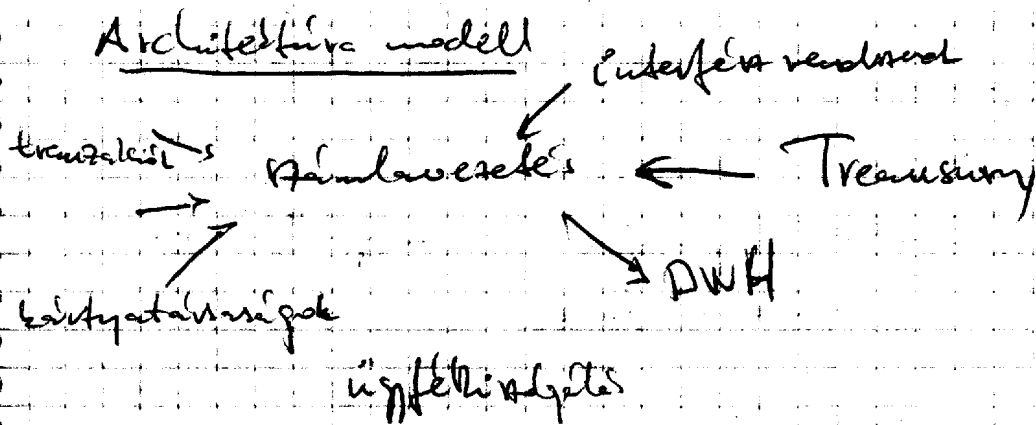 Architektúra modell
interfész rendszerek
tranzakciók
számlavezetés
Treausury
DWH
kártyatársaságok
ügyfélkiszolgálás